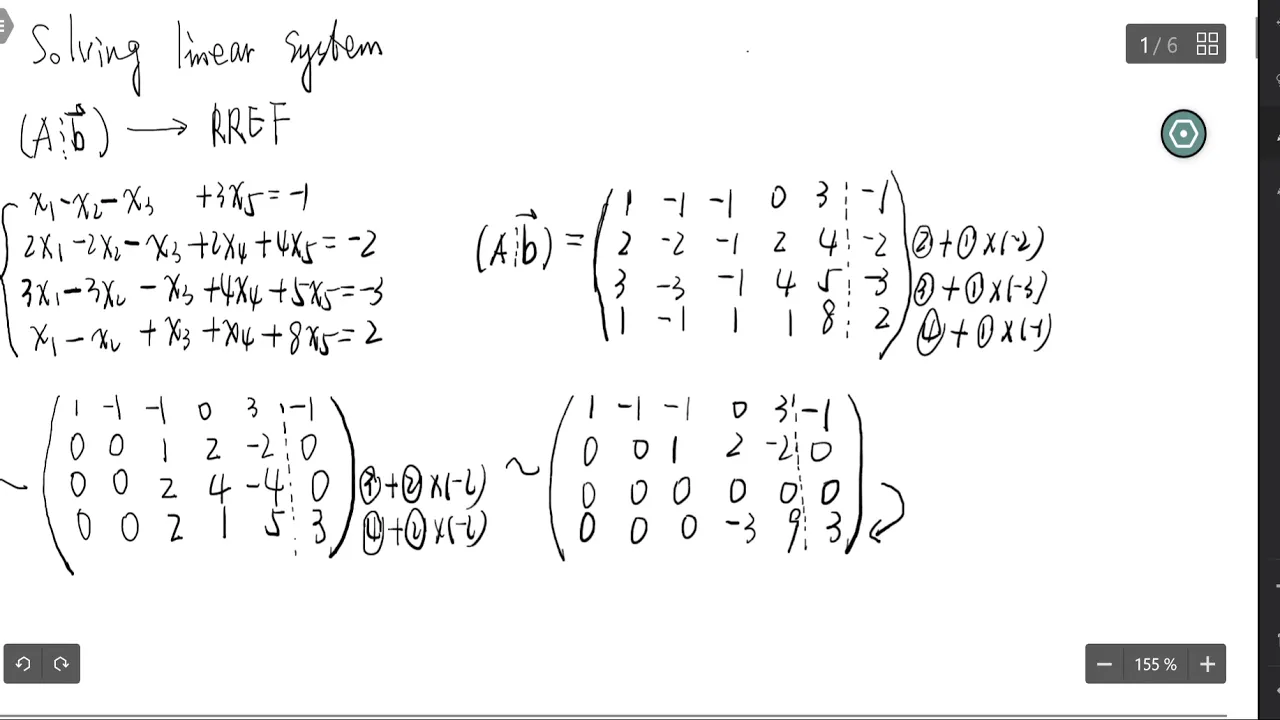 Solving linear system
(A¦b⃗) → RREF
x₁ - x₂ - x₃ + 3x₅ = -1
2x₁ - 2x₂ - x₃ + 2x₄ + 4x₅ = -2
3x₁ - 3x₂ - x₃ + 4x₄ + 5x₅ = -3
x₁ - x₂ + x₃ + x₄ + 8x₅ = 2
(A¦b⃗) =
1 -1 -1 0 3 ¦ -1
2 -2 -1 2 4 ¦ -2 ② + ① × (-2)
3 -3 -1 4 5 ¦ -3 ③ + ① × (-3)
1 -1 1 1 8 ¦ 2 ④ + ① × (-1)
~
1 -1 -1 0 3 ¦ -1
0 0 1 2 -2 ¦ 0
0 0 2 4 -4 ¦ 0 ③ + ② × (-2)
0 0 2 1 5 ¦ 3 ④ + ② × (-2)
~
1 -1 -1 0 3 ¦ -1
0 0 1 2 -2 ¦ 0
0 0 0 0 0 ¦ 0
0 0 0 -3 9 ¦ 3
1 / 6
155 %